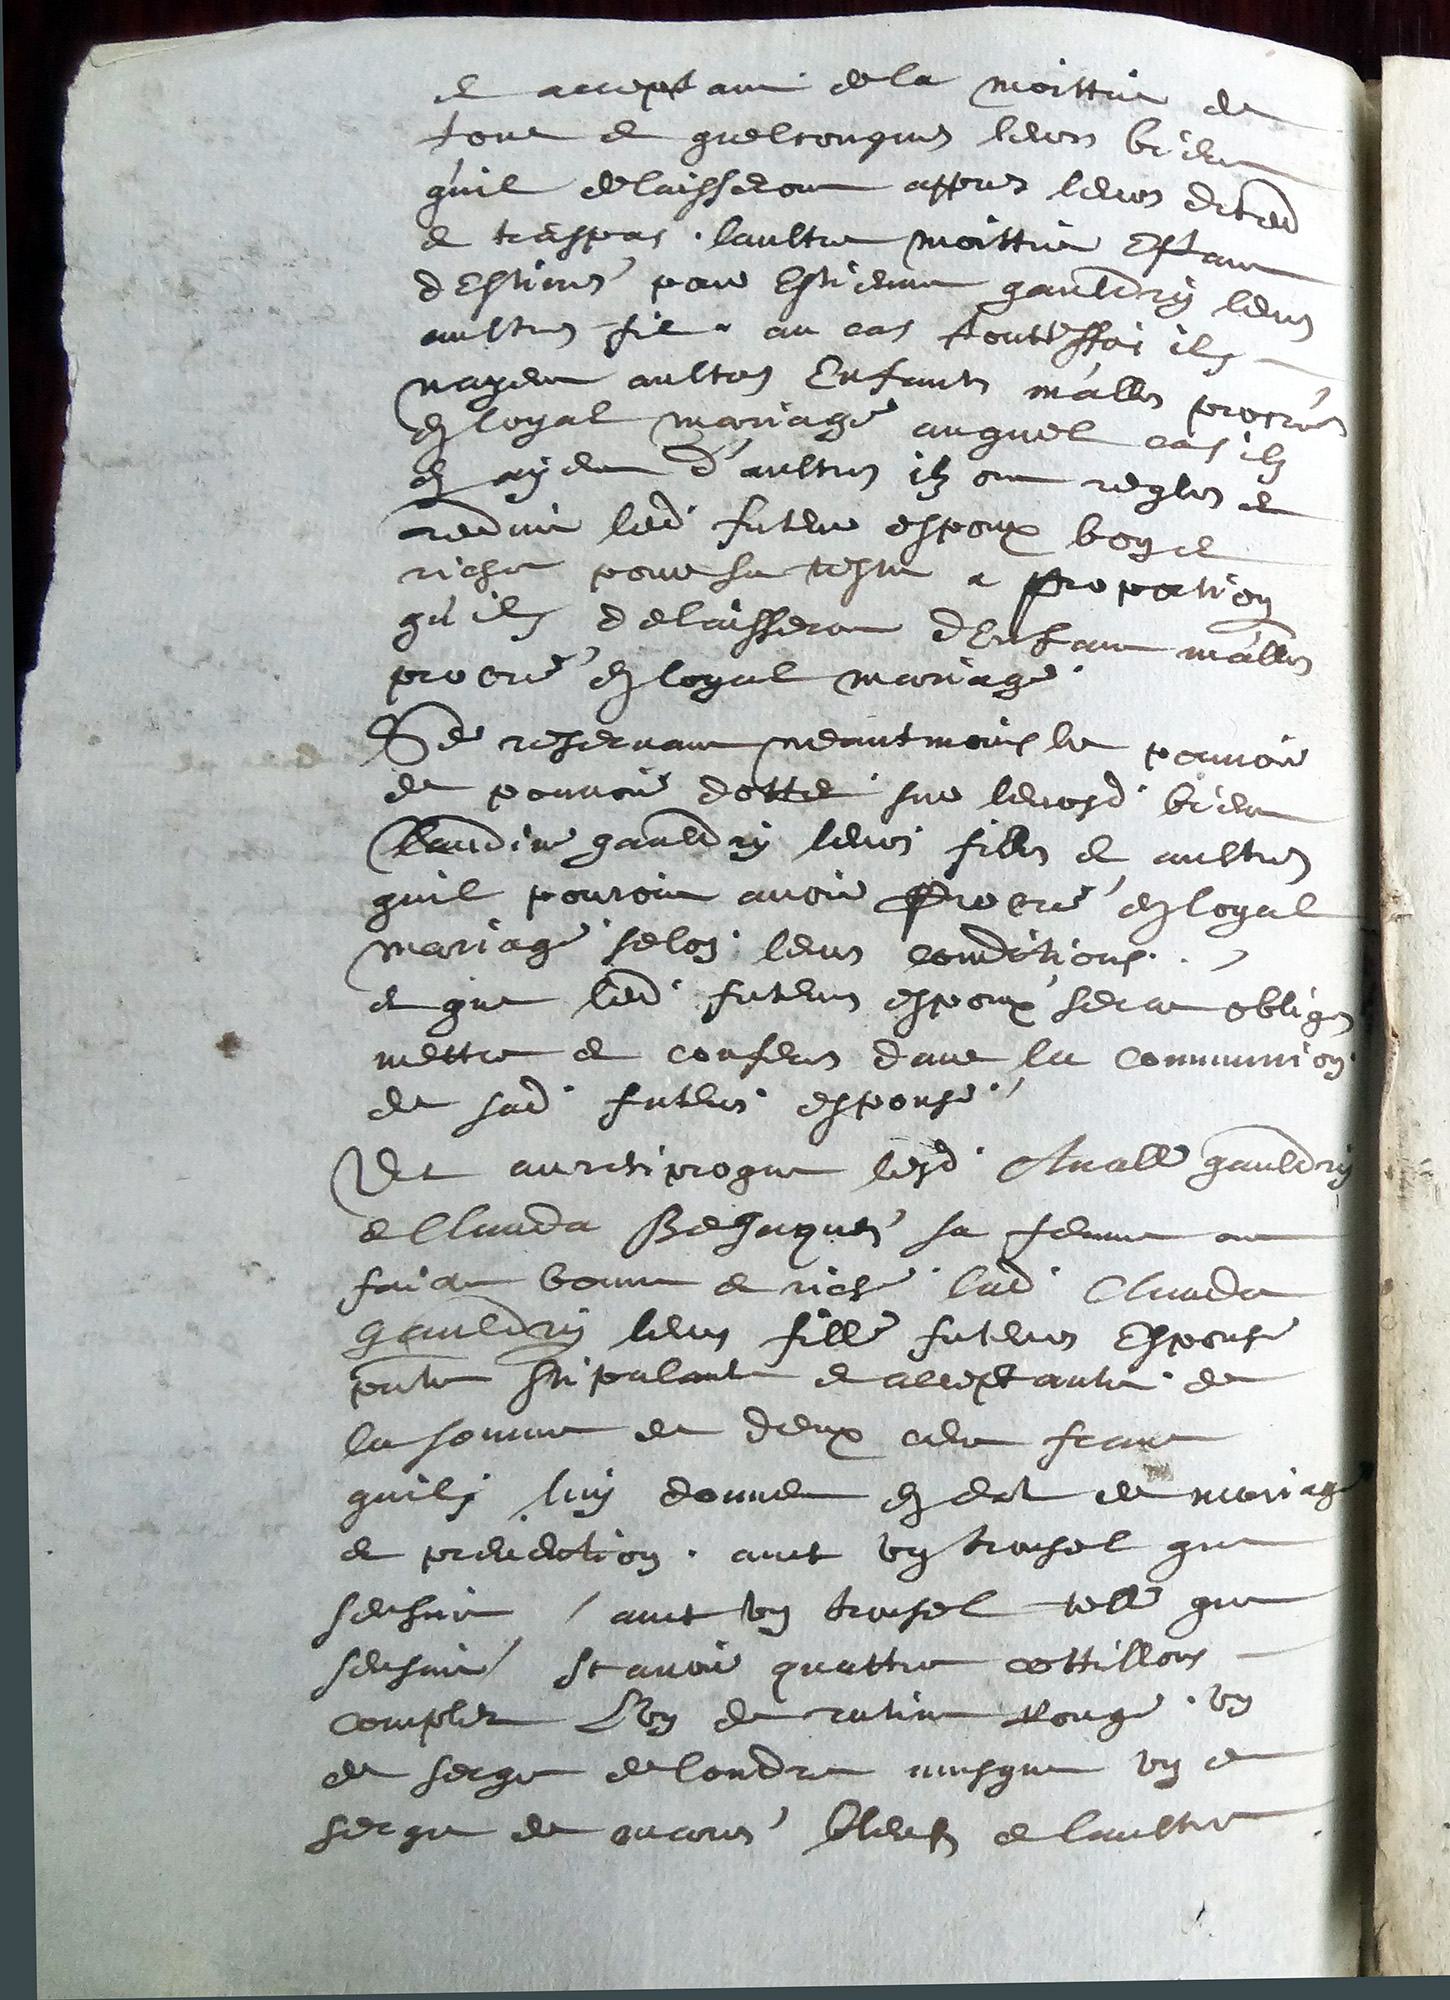 et acceptant de la moittie de
tous et quelconques leurs biens
quil delaisseront appres leurs deced
et trespas . laultre moittie estant
destinés pour Estienne gauldry leurs
aultres fils au cas touttesfois ilz
nayent aultres Enfants malles procrés
en loyal mariage auquel cas ilz
en ayent d'aultres ilz ont regles et
reduit led futur espoux bon et
riche pour sa teste a proportion
qu'ilz delaisseront d'Enfant malles
procré en loyal mariage
Se reservant neantmoins le pouvoir
de pouvoir dotter sur leursd biens
Claudine gauldry leurs filles et aultres
quil pouroint avoir procré en loyal
mariage selon leurs conditions .
et que led futurs espoux sera obliges
mettre et conferer dans la communion
de sad future espouse
Et au resiproque lesd gauldry
et Clauda sa femme ont
faict bonne et riche lad Clauda
gauldry leurs fille future Espouse
pnte stipulante et acceptante de
la somme de deux cent franc
quilz luy donnent en dot de mariage
et . avec un trosel que
sensuit / avec un trosel telle que
sensuit / scavoir quattre cottillons
complet L'un de ratine Rouge . un
de serge de londre musque un de
serge de bleufs et laultre